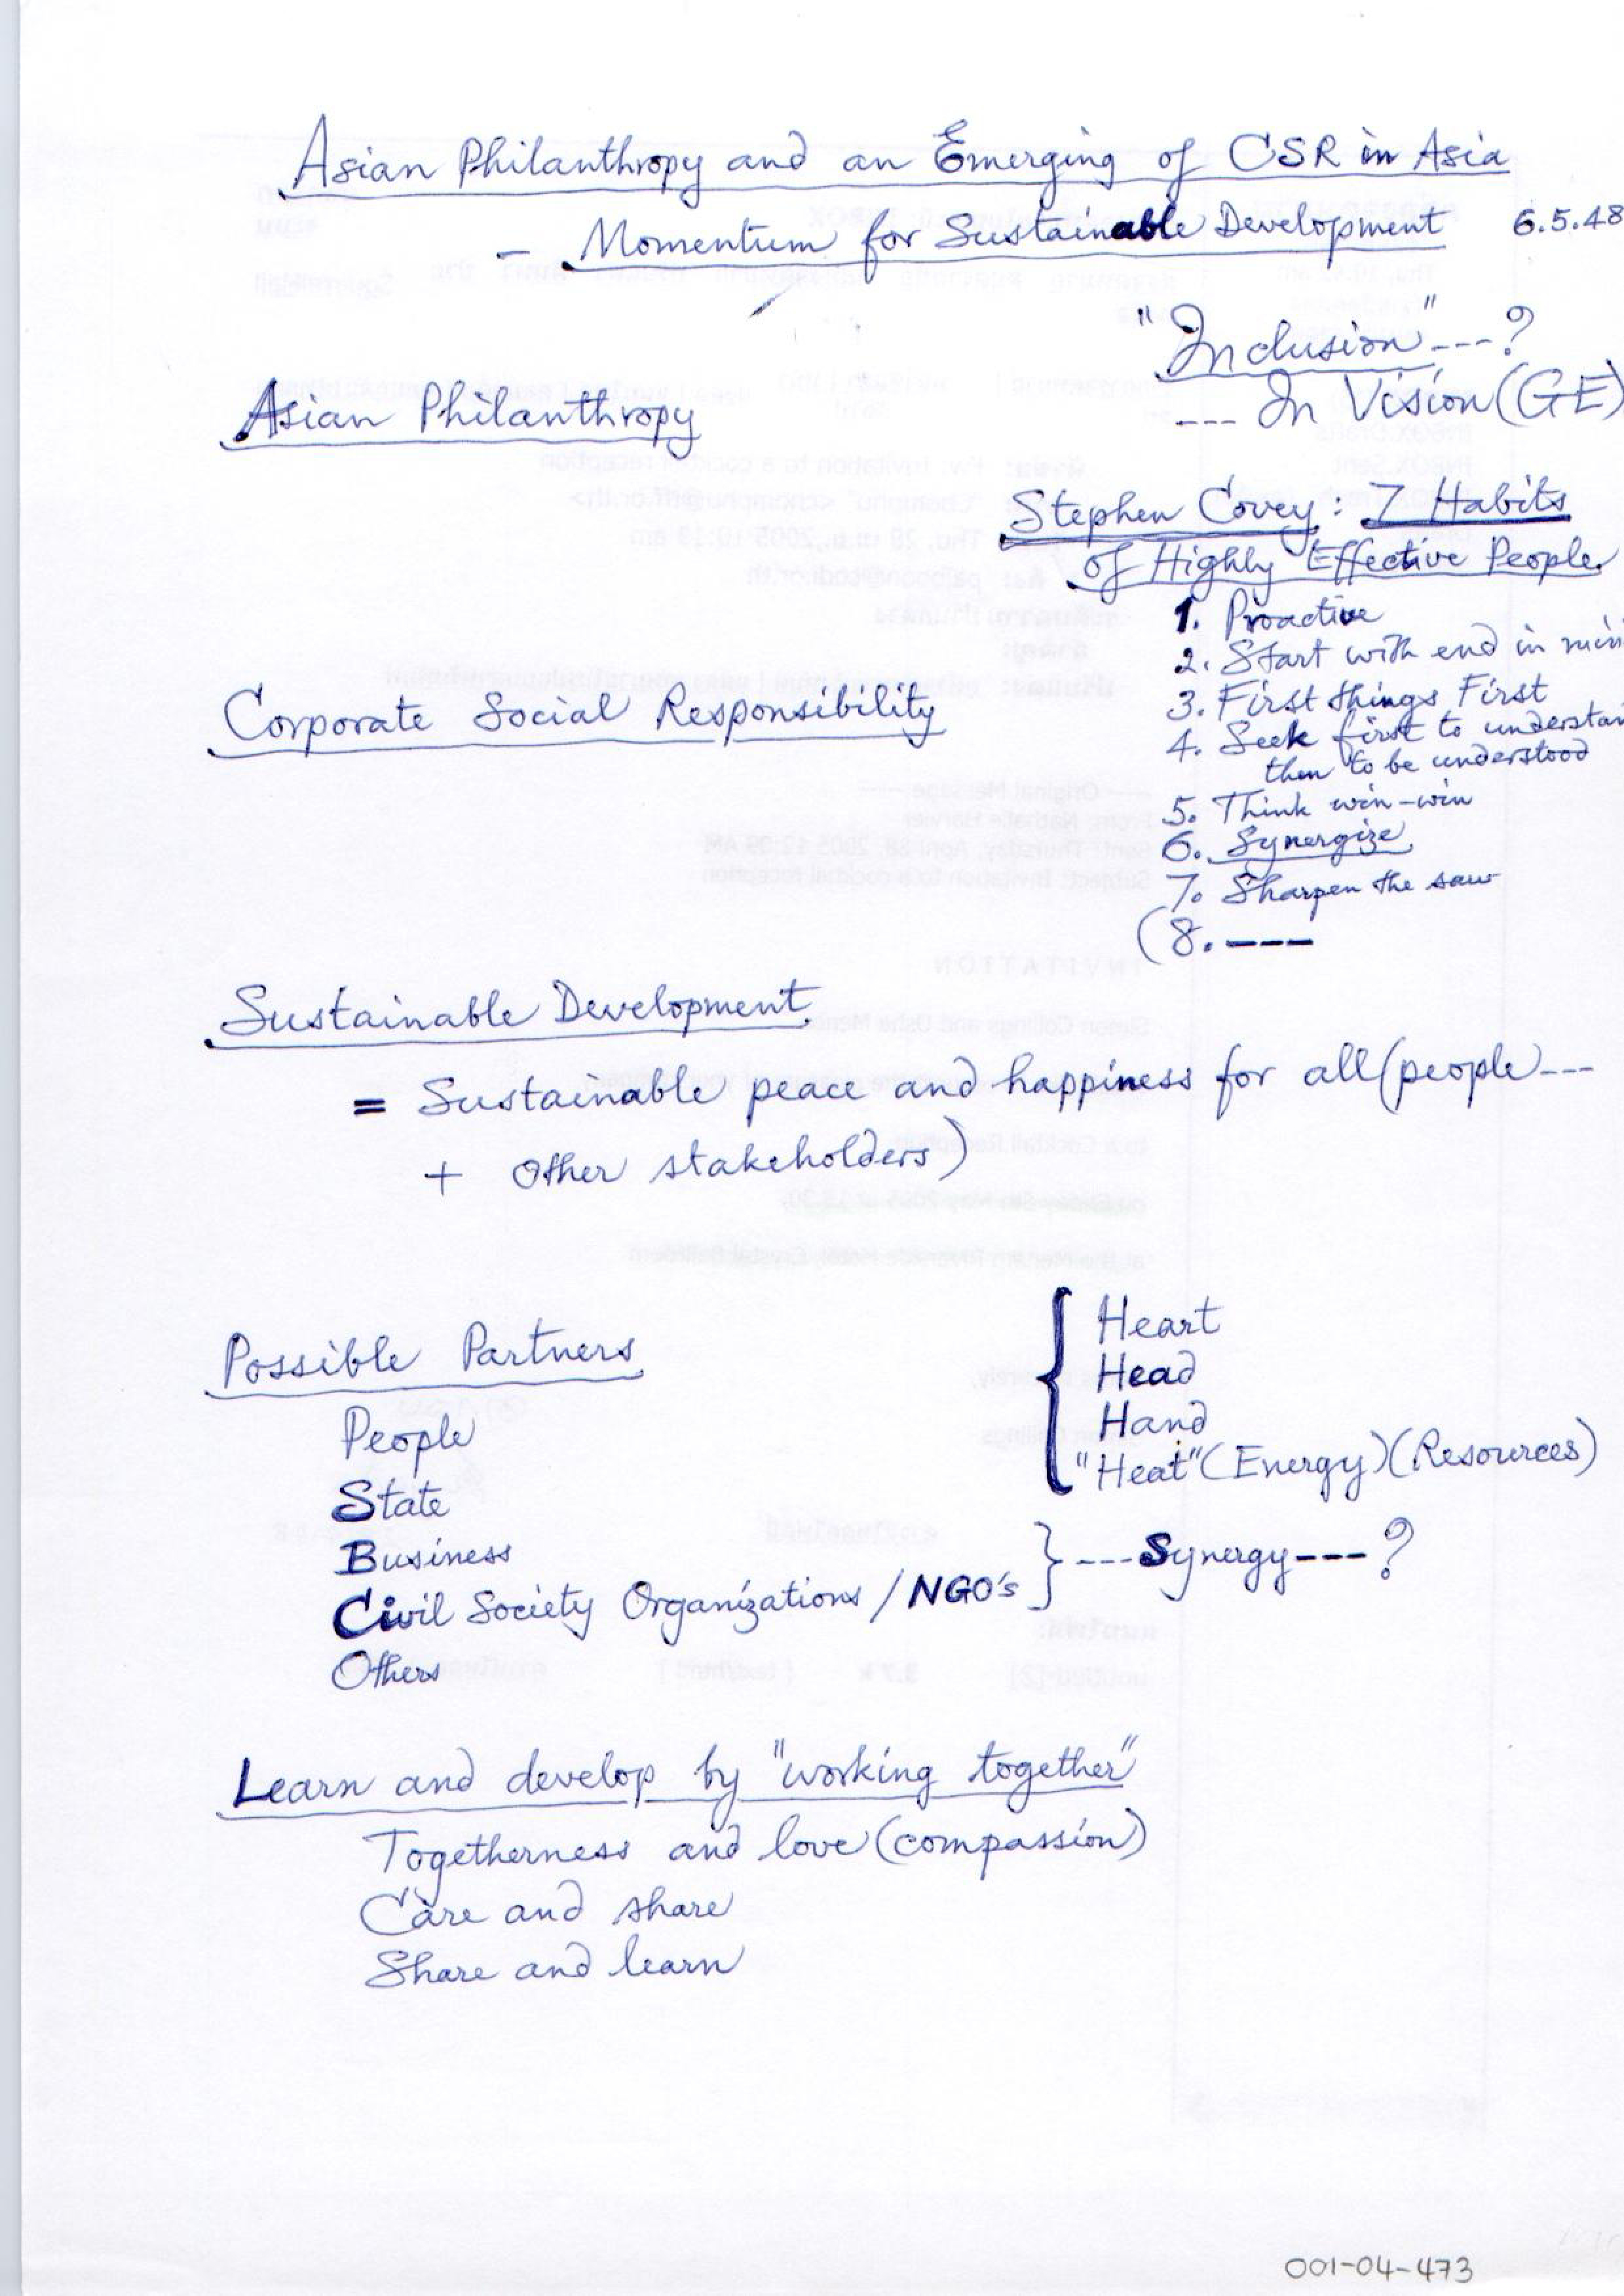 Asian Philanthropy and an Emerging of CSR in Asia
- Momentum for Sustainable Development 6.5.48
"Inclusion"---?
--- In Vision (GE)
Asian Philanthropy
Stephen Covey: 7 Habits
of Highly Effective People
1. Proactive
2. Start with end in
3. First things First
Corporate Social Responsibility
4. Seek first to
then to be understood
5. Think win-win
6. Synergize
7. Sharpen the saw
(8. ---
Sustainable Development
= Sustainable peace and happiness for all (people---
+ other stakeholders)
Possible Partners
People
State
Business
Civil Society Organizations / NGO's
Others
Heart
Head
Hand
"Heat" (Energy) (Resources)
---Synergy---?
Learn and develop by "working together"
Togetherness and love (compassion)
Care and share
Share and learn
001-04-473